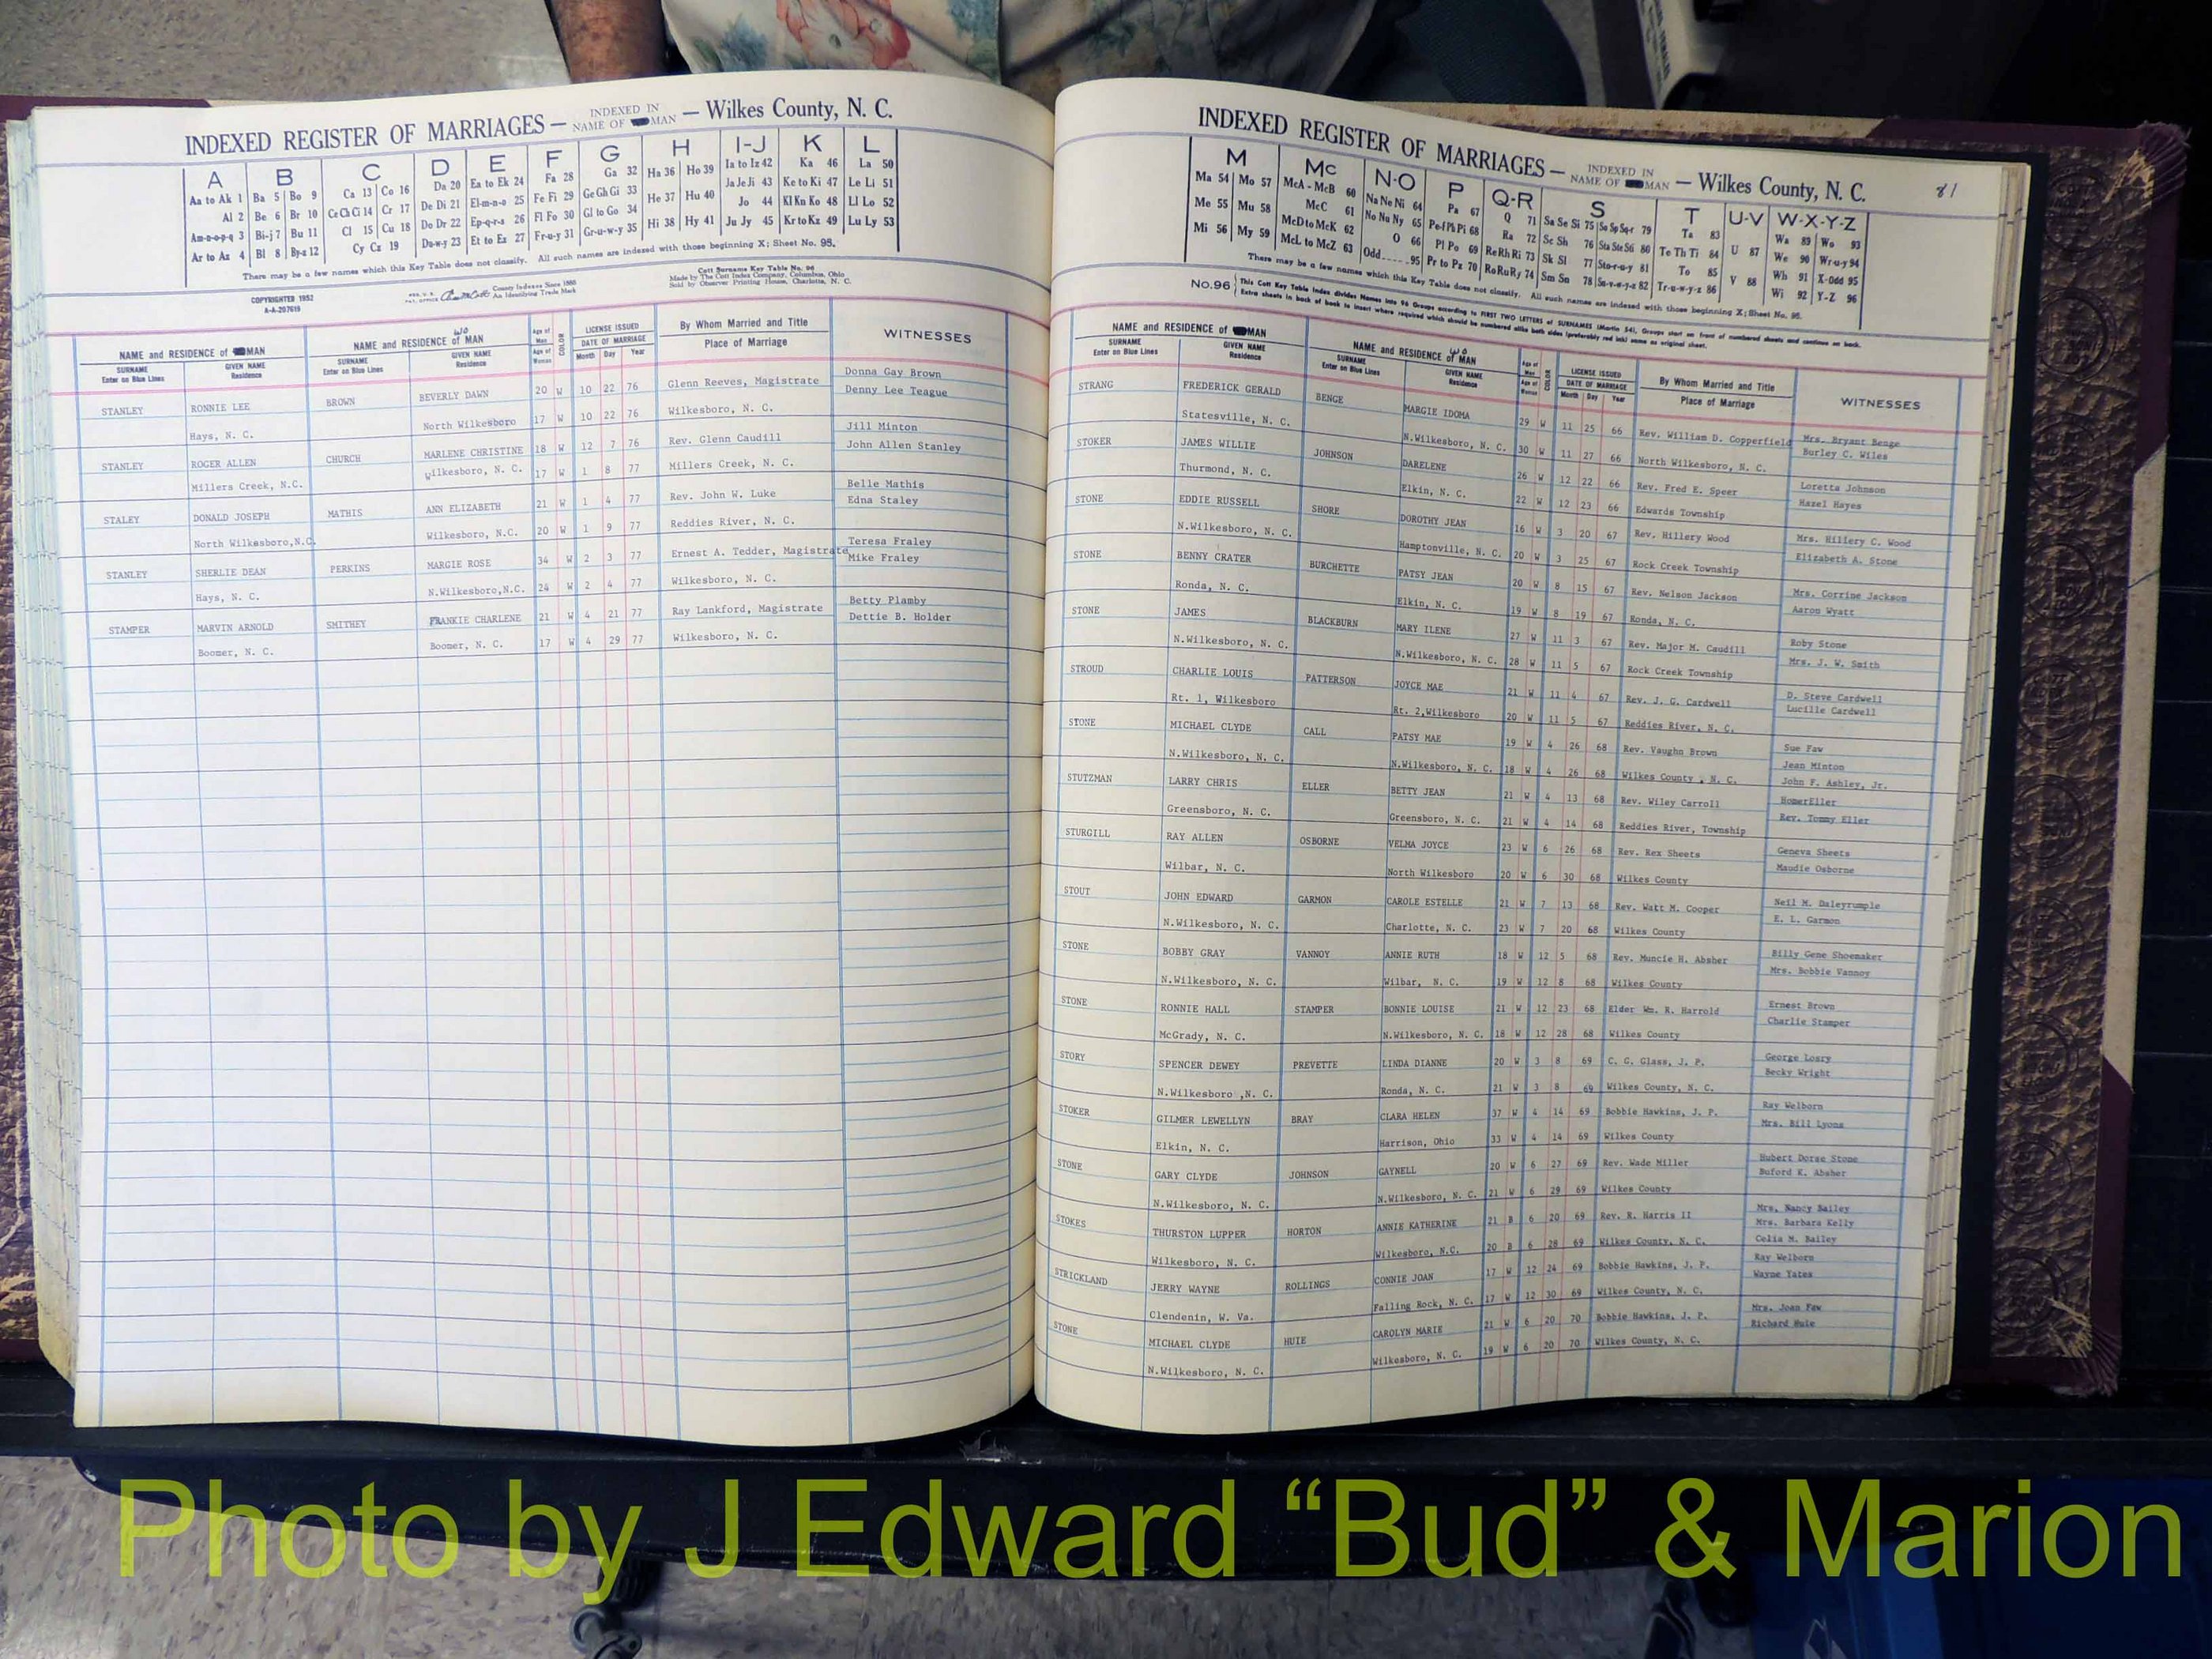 INDEXED REGISTER OF MARRIAGES — INDEXED IN NAME OF MAN — Wilkes County, N. C.
A B C D E F G H I-J K L
Aa to Ak 1 Ba 5 Bo 9 Ca 13 Co 16 Da 20 Ea to Ek 24 Fa 28 Ga 32 Ha 36 Ho 39 Ia to Iz 42 Ka 46 La 50
Al 2 Be 6 Br 10 Ce Ch Ci 14 Cr 17 De Di 21 El-m-n-o 25 Fe Fi 29 Ge Gh Gi 33 He 37 Hu 40 Ja Je Ji 43 Ke to Ki 47 Le Li 51
Am-n-o-p-q 3 Bi-j 7 Bu 11 Cl 15 Cu 18 Do Dr 22 Ep-q-r-s 26 Fl Fo 30 Gl to Go 34 Hi 38 Hy 41 Jo 44 Kl Kn Ko 48 Ll Lo 52
Ar to Az 4 Bl 8 By-z 12 Cy Cz 19 Du-w-y 23 Et to Ez 27 Fr-u-y 31 Gr-u-w-y 35 Ju Jy 45 Kr to Kz 49 Lu Ly 53
There may be a few names which this Key Table does not classify. All such names are indexed with those beginning X; Sheet No. 95.
COPYRIGHTED 1952
A-A-207619
County Indexes Since 1888
An Identifying Trade Mark
Cott Surname Key Table No. 96
Made by The Cott Index Company, Columbus, Ohio
Sold by Observer Printing House, Charlotte, N. C.
NAME and RESIDENCE of MAN NAME and RESIDENCE of WOMAN Age of Man Age of Woman COLOR LICENSE ISSUED DATE OF MARRIAGE Month Day Year By Whom Married and Title Place of Marriage WITNESSES
SURNAME Enter on Blue Lines GIVEN NAME Residence SURNAME Enter on Blue Lines GIVEN NAME Residence
STANLEY RONNIE LEE BROWN BEVERLY DAWN 20 W 10 22 76 Glenn Reeves, Magistrate Donna Gay Brown
Hays, N. C. North Wilkesboro 17 W 10 22 76 Wilkesboro, N. C. Denny Lee Teague
STANLEY ROGER ALLEN CHURCH MARLENE CHRISTINE 18 W 12 7 76 Rev. Glenn Caudill Jill Minton
Millers Creek, N.C. wilkesboro, N. C. 17 W 1 8 77 Millers Creek, N. C. John Allen Stanley
STALEY DONALD JOSEPH MATHIS ANN ELIZABETH 21 W 1 4 77 Rev. John W. Luke Belle Mathis
North Wilkesboro,N.C. Wilkesboro, N.C. 20 W 1 9 77 Reddies River, N. C. Edna Staley
STANLEY SHERLIE DEAN PERKINS MARGIE ROSE 34 W 2 3 77 Ernest A. Tedder, Magistrate Teresa Fraley
Hays, N. C. N.Wilkesboro,N.C. 24 W 2 4 77 Wilkesboro, N. C. Mike Fraley
STAMPER MARVIN ARNOLD SMITHEY FRANKIE CHARLENE 21 W 4 21 77 Ray Lankford, Magistrate Betty Plamby
Boomer, N. C. Boomer, N. C. 17 W 4 29 77 Wilkesboro, N. C. Dettie B. Holder
INDEXED REGISTER OF MARRIAGES — INDEXED IN NAME OF MAN — Wilkes County, N. C. 81
M Mc N-O P Q-R S T U-V W-X-Y-Z
Ma 54 Mo 57 McA - McB 60 Na Ne Ni 64 Pa 67 Q 71 Sa Se Si 75 So Sp Sq-r 79 Ta 83 U 87 Wa 89 Wo 93
Me 55 Mu 58 McC 61 No Nu Ny 65 Pe-f Ph Pi 68 Ra 72 Sc Sh 76 Sta Ste Sti 80 Te Th Ti 84 V 88 We 90 Wr-u-y 94
Mi 56 My 59 McD to McK 62 O 66 Pl Po 69 Re Rh Ri 73 Sk Sl 77 Sto-r-u-y 81 To 85 Wh 91 X-Odd 95
McL to McZ 63 Odd 95 Pr to Pz 70 Ro Ru Ry 74 Sm Sn 78 Su-v-w-y-z 82 Tr-u-w-y-z 86 Wi 92 Y-Z 96
There may be a few names which this Key Table does not classify. All such names are indexed with those beginning X; Sheet No. 95.
No.96 This Cott Key Table Index divides Names into 96 Groups according to FIRST TWO LETTERS of SURNAMES (Martin 54). Groups start on front of numbered sheets and continue on back.
Extra sheets in back of book to insert where required which should be numbered alike both sides (preferably red ink) same as original sheet.
NAME and RESIDENCE of MAN NAME and RESIDENCE of WOMAN Age of Man Age of Woman COLOR LICENSE ISSUED DATE OF MARRIAGE Month Day Year By Whom Married and Title Place of Marriage WITNESSES
SURNAME Enter on Blue Lines GIVEN NAME Residence SURNAME Enter on Blue Lines GIVEN NAME Residence
STRANG FREDERICK GERALD BENGE MARGIE IDOMA 29 W 11 25 66 Rev. William D. Copperfield Mrs. Bryant Benge
Statesville, N. C. N.Wilkesboro, N. C. 30 W 11 27 66 North Wilkesboro, N. C. Burley C. Wiles
STOKER JAMES WILLIE JOHNSON DARELENE 26 W 12 22 66 Rev. Fred E. Speer Loretta Johnson
Thurmond, N. C. Elkin, N. C. 22 W 12 23 66 Edwards Township Hazel Hayes
STONE EDDIE RUSSELL SHORE DOROTHY JEAN 16 W 3 20 67 Rev. Hillery Wood Mrs. Hillery C. Wood
N.Wilkesboro, N. C. Hamptonville, N. C. 20 W 3 25 67 Rock Creek Township Elizabeth A. Stone
STONE BENNY CRATER BURCHETTE PATSY JEAN 20 W 8 15 67 Rev. Nelson Jackson Mrs. Corrine Jackson
Ronda, N. C. Elkin, N. C. 19 W 8 19 67 Ronda, N. C. Aaron Wyatt
STONE JAMES BLACKBURN MARY ILENE 27 W 11 3 67 Rev. Major M. Caudill Roby Stone
N.Wilkesboro, N. C. N.Wilkesboro, N. C. 28 W 11 5 67 Rock Creek Township Mrs. J. W. Smith
STROUD CHARLIE LOUIS PATTERSON JOYCE MAE 21 W 11 4 67 Rev. J. G. Cardwell D. Steve Cardwell
Rt. 1, Wilkesboro Rt. 2,Wilkesboro 20 W 11 5 67 Reddies River, N. C. Lucille Cardwell
STONE MICHAEL CLYDE CALL PATSY MAE 19 W 4 26 68 Rev. Vaughn Brown Sue Faw
Jean Minton
N.Wilkesboro, N. C. N.Wilkesboro, N. C. 18 W 4 26 68 Wilkes County , N. C. John F. Ashley, Jr.
STUTZMAN LARRY CHRIS ELLER BETTY JEAN 21 W 4 13 68 Rev. Wiley Carroll HomerEller
Greensboro, N. C. Greensboro, N. C. 21 W 4 14 68 Reddies River, Township Rev. Tommy Eller
STURGILL RAY ALLEN OSBORNE VELMA JOYCE 23 W 6 26 68 Rev. Rex Sheets Geneva Sheets
Wilbar, N. C. North Wilkesboro 20 W 6 30 68 Wilkes County Maudie Osborne
STOUT JOHN EDWARD GARMON CAROLE ESTELLE 21 W 7 13 68 Rev. Watt M. Cooper Neil M. Daleyrumple
N.Wilkesboro, N. C. Charlotte, N. C. 23 W 7 20 68 Wilkes County E. L. Garmon
STONE BOBBY GRAY VANNOY ANNIE RUTH 18 W 12 5 68 Rev. Muncie H. Absher Billy Gene Shoemaker
N.Wilkesboro, N. C. Wilbar, N. C. 19 W 12 8 68 Wilkes County Mrs. Bobbie Vannoy
STONE RONNIE HALL STAMPER BONNIE LOUISE 21 W 12 23 68 Elder Wm. R. Harrold Ernest Brown
McGrady, N. C. N.Wilkesboro, N. C. 18 W 12 28 68 Wilkes County Charlie Stamper
STORY SPENCER DEWEY PREVETTE LINDA DIANNE 20 W 3 8 69 C. C. Glass, J. P. George Losry
N.Wilkesboro ,N. C. Ronda, N. C. 21 W 3 8 69 Wilkes County, N. C. Becky Wright
STOKER GILMER LEWELLYN BRAY CLARA HELEN 37 W 4 14 69 Bobbie Hawkins, J. P. Ray Welborn
Elkin, N. C. Harrison, Ohio 33 W 4 14 69 Wilkes County Mrs. Bill Lyons
STONE GARY CLYDE JOHNSON GAYNELL 20 W 6 27 69 Rev. Wade Miller Hubert Dorse Stone
N.Wilkesboro, N. C. N.Wilkesboro, N. C. 21 W 6 29 69 Wilkes County Buford K. Absher
STOKES THURSTON LUPPER HORTON ANNIE KATHERINE 21 B 6 20 69 Rev. R. Harris II Mrs. Nancy Bailey
Mrs. Barbara Kelly
Wilkesboro, N. C. Wilkesboro, N.C. 20 B 6 28 69 Wilkes County, N. C. Celia M. Bailey
STRICKLAND JERRY WAYNE ROLLINGS CONNIE JOAN 17 W 12 24 69 Bobbie Hawkins, J. P. Ray Welborn
Clendenin, W. Va. Falling Rock, N. C. 17 W 12 30 69 Wilkes County, N. C. Wayne Yates
STONE MICHAEL CLYDE HUIE CAROLYN MARIE 21 W 6 20 70 Bobbie Hawkins, J. P. Mrs. Joan Faw
N.Wilkesboro, N. C. Wilkesboro, N. C. 19 W 6 20 70 Wilkes County, N. C. Richard Huie
Photo by J Edward “Bud” & Marion